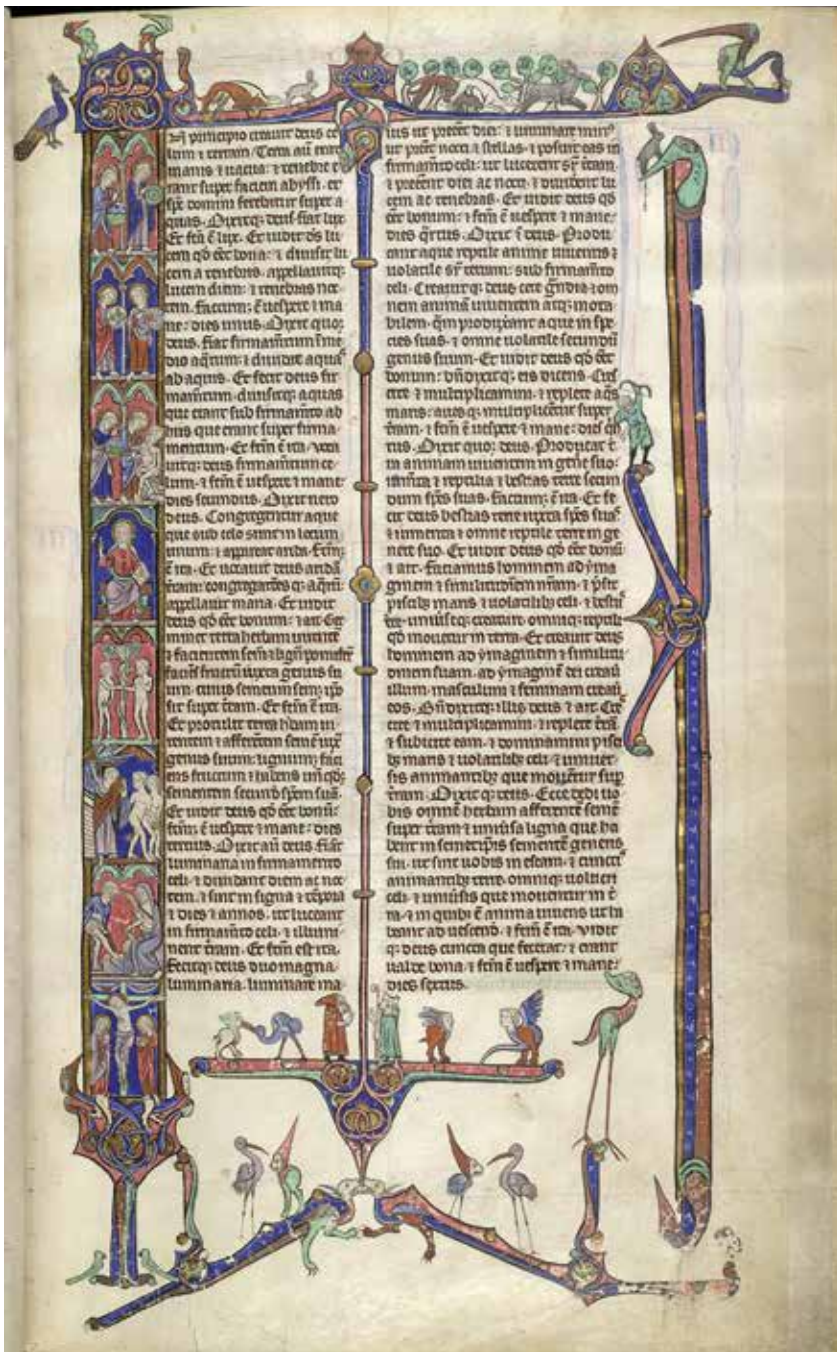 In principio creauit deus ce
lum ⁊ terram. Terra aũ erat
inanis ⁊ uacua: ⁊ tenebre e
rant super faciem abyssi. et
sp̃c domini ferebatur super a
quas. Dixitq; deus. fiat lux
Et fc̃a ẽ lux. Et uidit dſ̃ lu
cem qð eẽt bona: ⁊ diuisit lu
cem a tenebris. appellauitq;
lucem diem: ⁊ tenebras noc
tem. factumq; ẽ uespere ⁊ ma
ne: dies unus. Dixit quoq;
deus. fiat firmam̃tum ĩ me
dio aq̃rum: ⁊ diuidat aquas
ab aquis. Et fecit deus fir
mam̃tum. diuisitq; aquas
que erant sub firmam̃to ab
his que erant super firma
mentum. Et fc̃m ẽ ita. voca
uitq; deus firmam̃tum ce
lum. ⁊ fc̃m ẽ uespere ⁊ mane
dies secundus. Dixit uero
deus. Congregentur aque
que sub celo sunt in locum
unum: ⁊ appareat arida. fc̃mq;
ẽ ita. Et uocauit deus aridã
t̃ram: congregac̃oes q; aq̃rũ
appellauit maria. Et uidit
deus qð eẽt bonum: ⁊ ait. Ger
minet terra herbam uirentẽ
⁊ facientem sem̃ ⁊ lignũ pomiferũ
faciẽs fructũ iuxta genus su
um. cuius semen in sem; ip̃o
sit super t̃ram. Et fc̃m ẽ ita.
Et protulit terra h̃bam ui
rentem ⁊ afferẽtem semẽ iux̃
genus suum: lignumq; faci
ens fructum ⁊ habens un̄ qð;
sementem secund̃ spẽm suã.
Et uidit deus qð eẽt bonũ:
fc̃mq; ẽ uespere ⁊ mane: dies
tercius. Dixit aũ deus. fiãt
luminaria in firmamento
celi. ⁊ diuidant diem ac noc
tem. ⁊ sint in signa ⁊ tẽpora
⁊ dies ⁊ annos. ut luceant
in firmam̃to celi. ⁊ illumi
nent t̃ram. Et fc̃m est ita.
fecitq; deus duo magna
luminaria. luminare ma
ius ut preẽt diei: ⁊ luminare minꝰ
ut preẽt nocti ⁊ stellas. ⁊ posuit eas in
firmam̃to celi: ut lucerent sr̃ t̃ram.
⁊ preẽent diei ac nocti. ⁊ diuident lu
cem ac tenebras. Et uidit deus qð
eẽt bonum: ⁊ fc̃m ẽ uespere ⁊ mane:
dies q̃rtus. Dixit ĩ deus. Produ
cant aque reptile anime uiuentis ⁊
uolatile sr̃ terram: sub firmam̃to
celi. Creauitq; deus cete g̃ndia ⁊ om
nem animã uiuentem atq; mota
bilem. qm̃ produxerant aque in spe
cies suas. ⁊ omne uolatile secundũ
genus suum. Et uidit deus qð eẽt
bonum: bñdixitq; eis dicens. Cres
cite ⁊ multiplicamini. ⁊ replete aq̃s
maris: auesq; multiplicẽtur super
t̃ram. ⁊ fc̃m ẽ uespere ⁊ mane: dies qĩ
tus. Dixit quoq; deus. Producat t̃
ra animam uiuentem in gene suo:
ium̃ta ⁊ reptilia ⁊ bestias terre secun
dum spẽs suas. factumq; ẽ ita. Et fe
cit deus bestias terre iuxta spẽs suas
⁊ iumenta ⁊ omne reptile terre in ge
nere suo. Et uidit deus qð eẽt bonũ
⁊ ait. faciamus hominem ad yma
ginem ⁊ similitudiẽm nr̃am. ⁊ p̃sit
piscibꝫ maris ⁊ uolatilibꝫ celi. ⁊ bestiis
tr̃e. uniuseq; creature. omniq; reptili
qð mouetur in terra. Et creauit deus
hominem ad ymaginem ⁊ similitu
dinem suam. ad ymaginẽ dei creauit
illum. masculum ⁊ feminam creauit
eos. Bñdixitq; illis deus ⁊ ait. Cres
cite ⁊ multiplicamini. ⁊ replete t̃rã
⁊ subicite eam. ⁊ dominamini pisci
bꝫ maris ⁊ uolatilibꝫ celi. ⁊ uniuer
sis animantibꝫ que mouẽtur sup
t̃ram. Dixitq; deus. Ecce dedi uo
bis omnẽ herbam afferentẽ semẽ
super t̃ram ⁊ uniũsa ligna que ha
bent in semetip̃is sementẽ generis
sui. ut sint uobis in escam. ⁊ cunctis
animantibꝫ terre. omniq; uolucri
celi. ⁊ uniũsis que mouentur in t̃
ra. ⁊ in quibꝫ ẽ anima uiuens ut ha
beant ad uescend̃. ⁊ fc̃m ẽ ita. vidit
q; deus cuncta que fecerat: ⁊ erant
ualde bona. ⁊ fc̃m ẽ uespere ⁊ mane:
dies sextus.